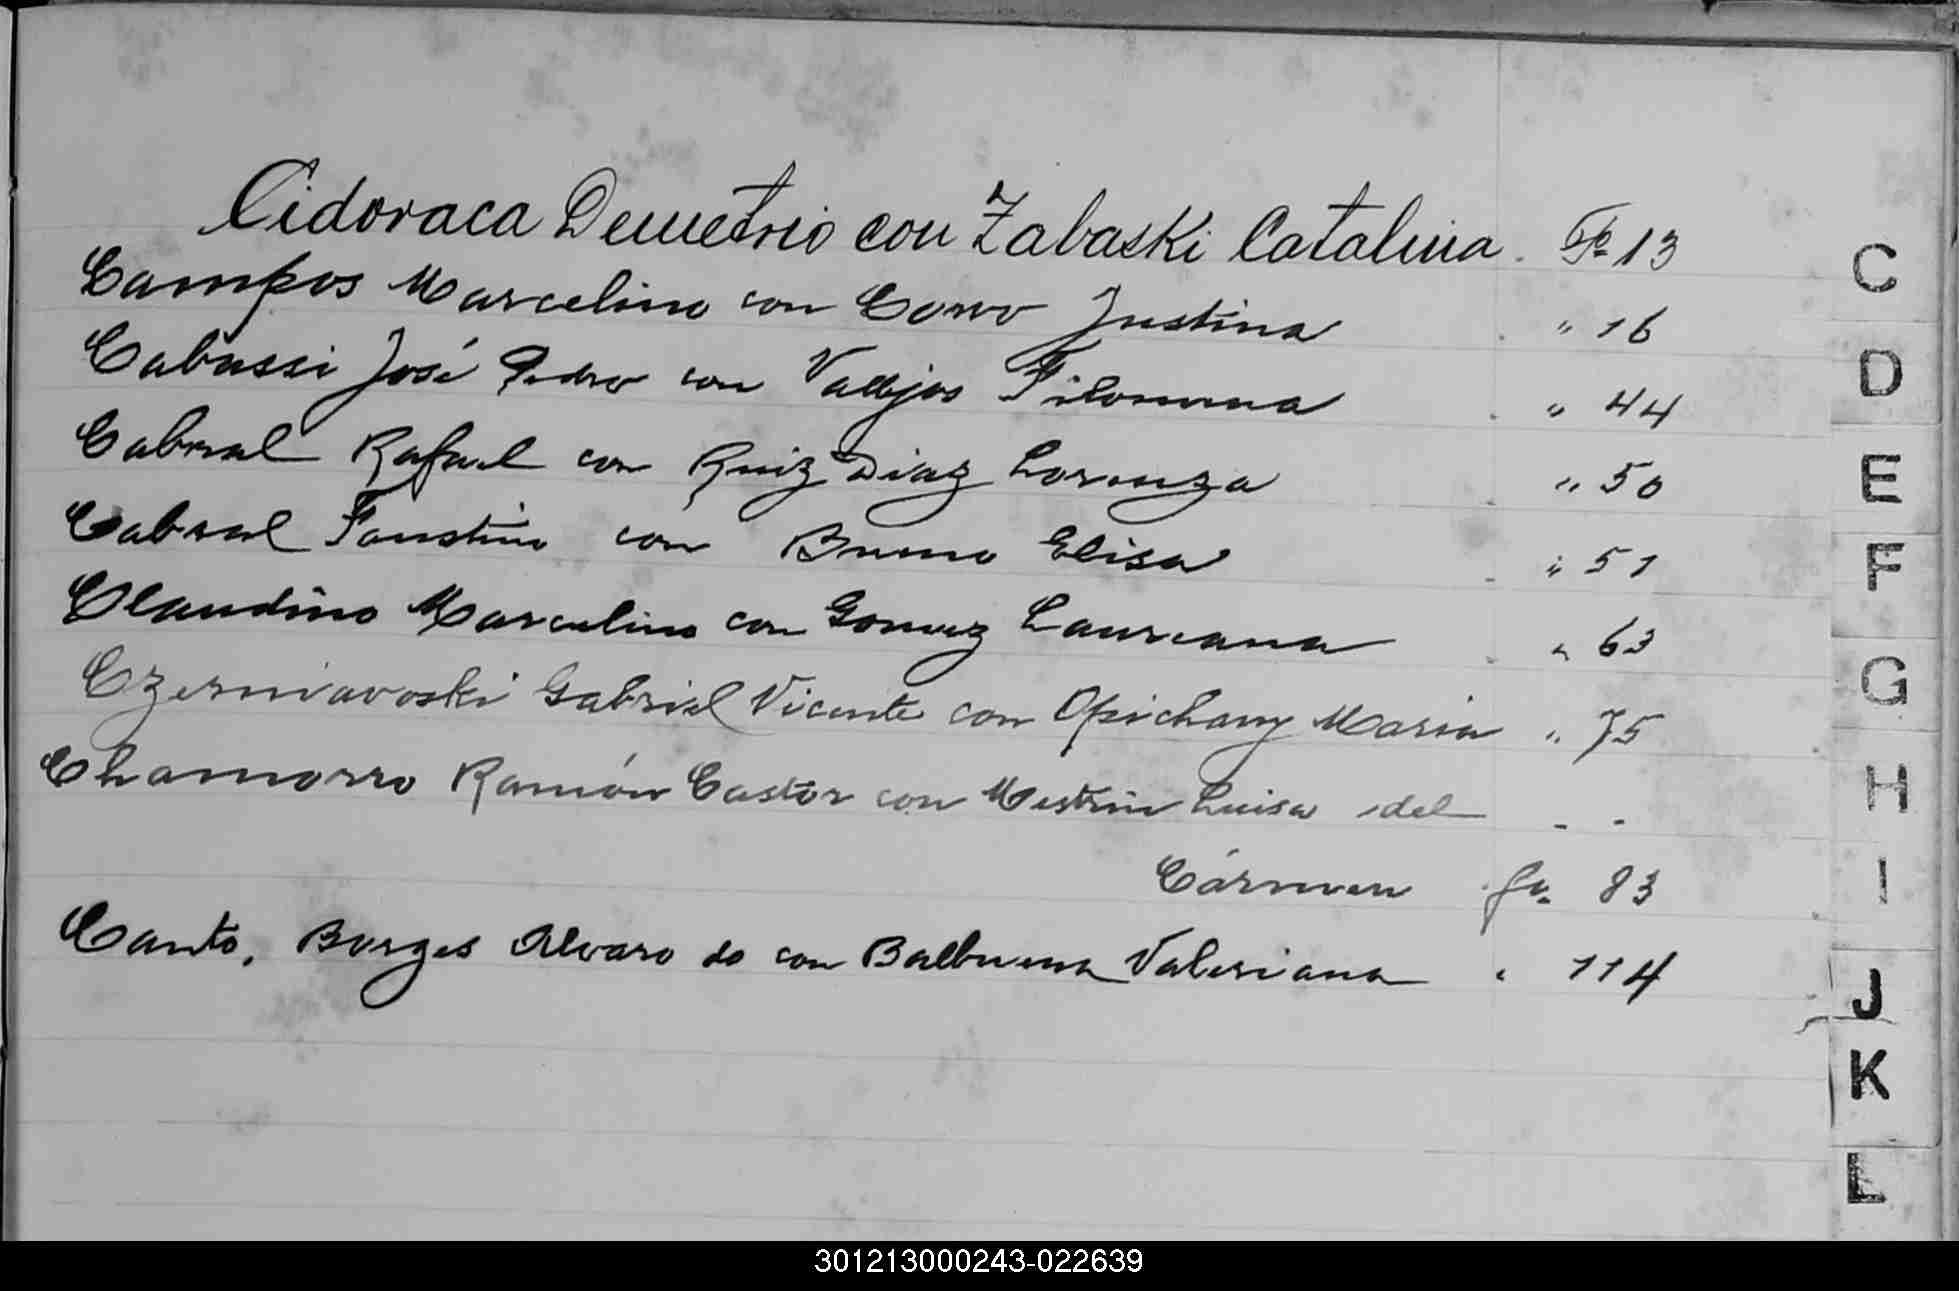 Cidoraca Demetrio con Zabaski Catalina. Fº 13
Campos Marcelino con Corvo Justina " 16
Cabussi José Pedro con Vallejos Filomena " 44
Cabral Rafael con Ruiz Diaz Lorenza " 50
Cabral Faustino con Bueno Elisa " 51
Claudino Marcelino con Gomez Laureana " 63
Czerniavoski Gabriel Vicente con Opichany Maria " 75
Chamorro Ramón Castor con Mestrin Luisa del - -
Cármen fo. 83
Canto, Borges Alvaro do con Balbuena Valeriana " 114
C
D
E
F
G
H
I
J
K
L
301213000243-022639